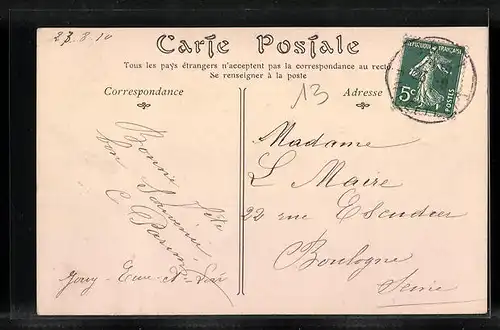 23.8.10
Carte Postale
Tous les pays étrangers n'acceptent pas la correspondance au recto
Se renseigner à la poste
Correspondance
Adresse
13
REPUBLIQUE FRANÇAISE
5c
POSTES
Bonne fête
bon Souvenir
C.
Jouy-Eure-et-Loir
Madame
L Maire
22 rue Escudier
Boulogne
Seine